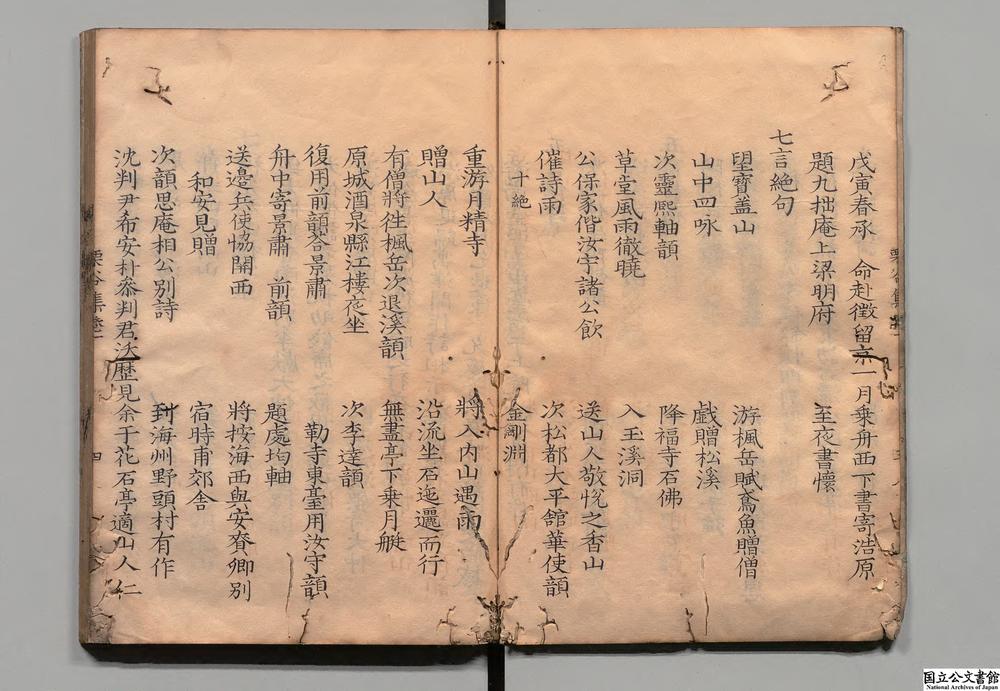 戊寅春承 命赴徵留京一月乗舟西下書寄浩原
題九拙庵上梁明府 至夜書懷
七言絶句
望寶盖山 游楓岳賦鳶魚贈僧
山中四咏 戲贈松溪
次靈熙軸韻 降福寺石佛
草堂風雨徹曉 入玉溪洞
公保家偕汝宇諸公飮 送山人敬悅之香山
催詩雨 次松都大平舘華使韻
十絶 金剛淵
重游月精寺 將入內山遇雨
贈山人 沿流坐石迤邐而行
有僧將徃楓岳次退溪韻 無盡亭下乗月艇
原城酒泉縣江樓夜坐 次李達韻
復用前韻答景肅 勒寺東臺用汝守韻
舟中寄景肅 前韻 題處均軸
送邊兵使協關西 將按海西與安賚卿別
和安見贈 宿時甫郊舍
次韻思庵相公別詩 到海州野頭村有作
沈判尹希安朴叅判君沃歷見余于花石亭適山人仁
栗谷集卷一 四
国立公文書館
National Archives of Japan